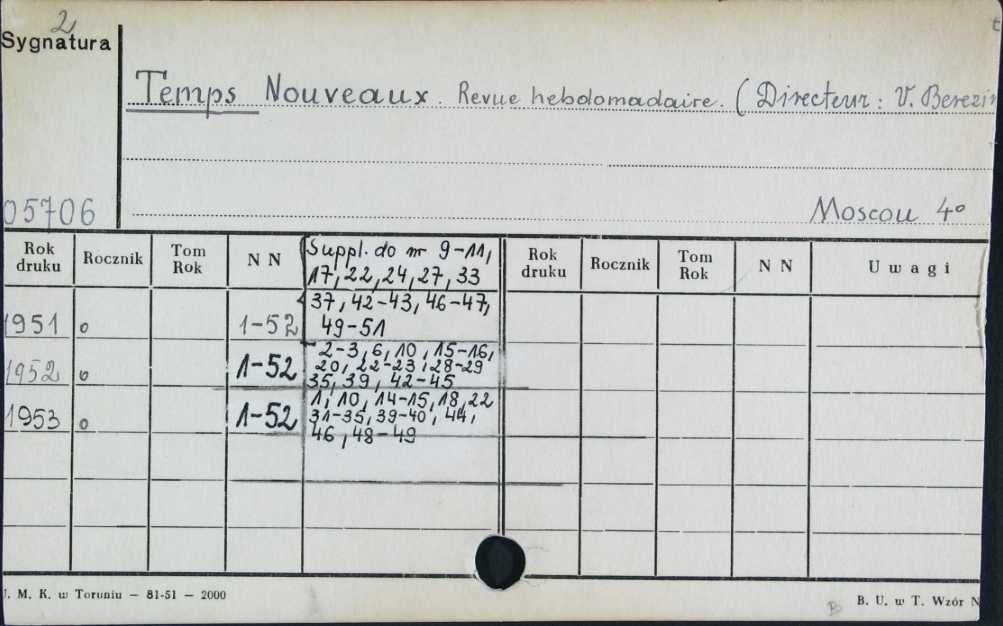 2
Sygnatura
Temps Nouveaux. Revue hebdomadaire. (Directeur: V. Berezin
05706
Moscou 4º
Rok druku Rocznik Tom Rok N N Suppl. do nr 9-11, Rok druku Rocznik Tom Rok N N Uwagi
17, 22, 24, 27, 33
37, 42-43, 46-47,
1951 o 1-52 49-51
2-3, 6, 10, 15-16,
1952 o 1-52 20, 22-23, 28-29
35, 39, 42-45
1, 10, 14-15, 18, 22
1953 o 1-52 31-35, 39-40, 44,
46, 48-49
J. M. K. w Toruniu — 81-51 — 2000
B. U. w T. Wzór N